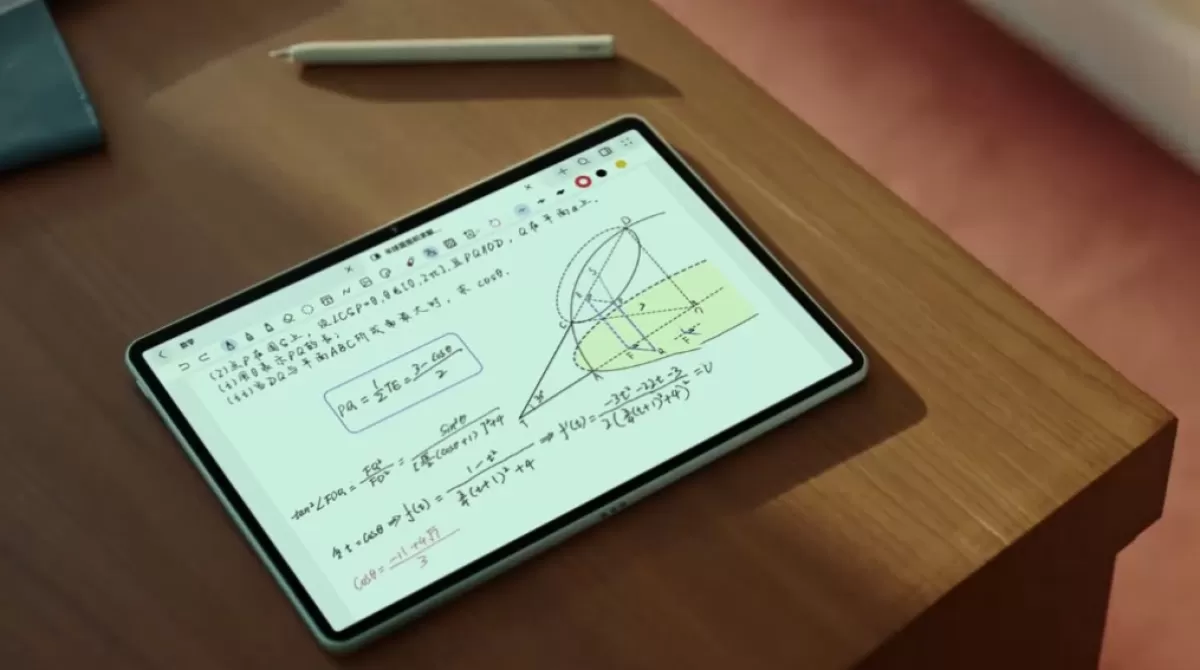 数学
(2) 点P在圆G上, 设∠CGP=θ, θ∈[0,2π], 且PQ∥OD, Q在平面α上.
(i) 用θ表示PQ的长;
(ii) 当DQ与平面ABC所成角最大时, 求 cosθ.
PQ = 1/2 TE = (3-cosθ)/2
tan²∠FDQ = FQ²/FD² = sin²θ
令 t = cosθ ⇒ f(t) = (1-t²)/(¾(t+1)²+4) ⇒ f'(t) = (-3t²-22t-3)/(2(¾(t+1)²+4)²) = 0
cosθ = (-11+4√7)/3
D
C
A
T